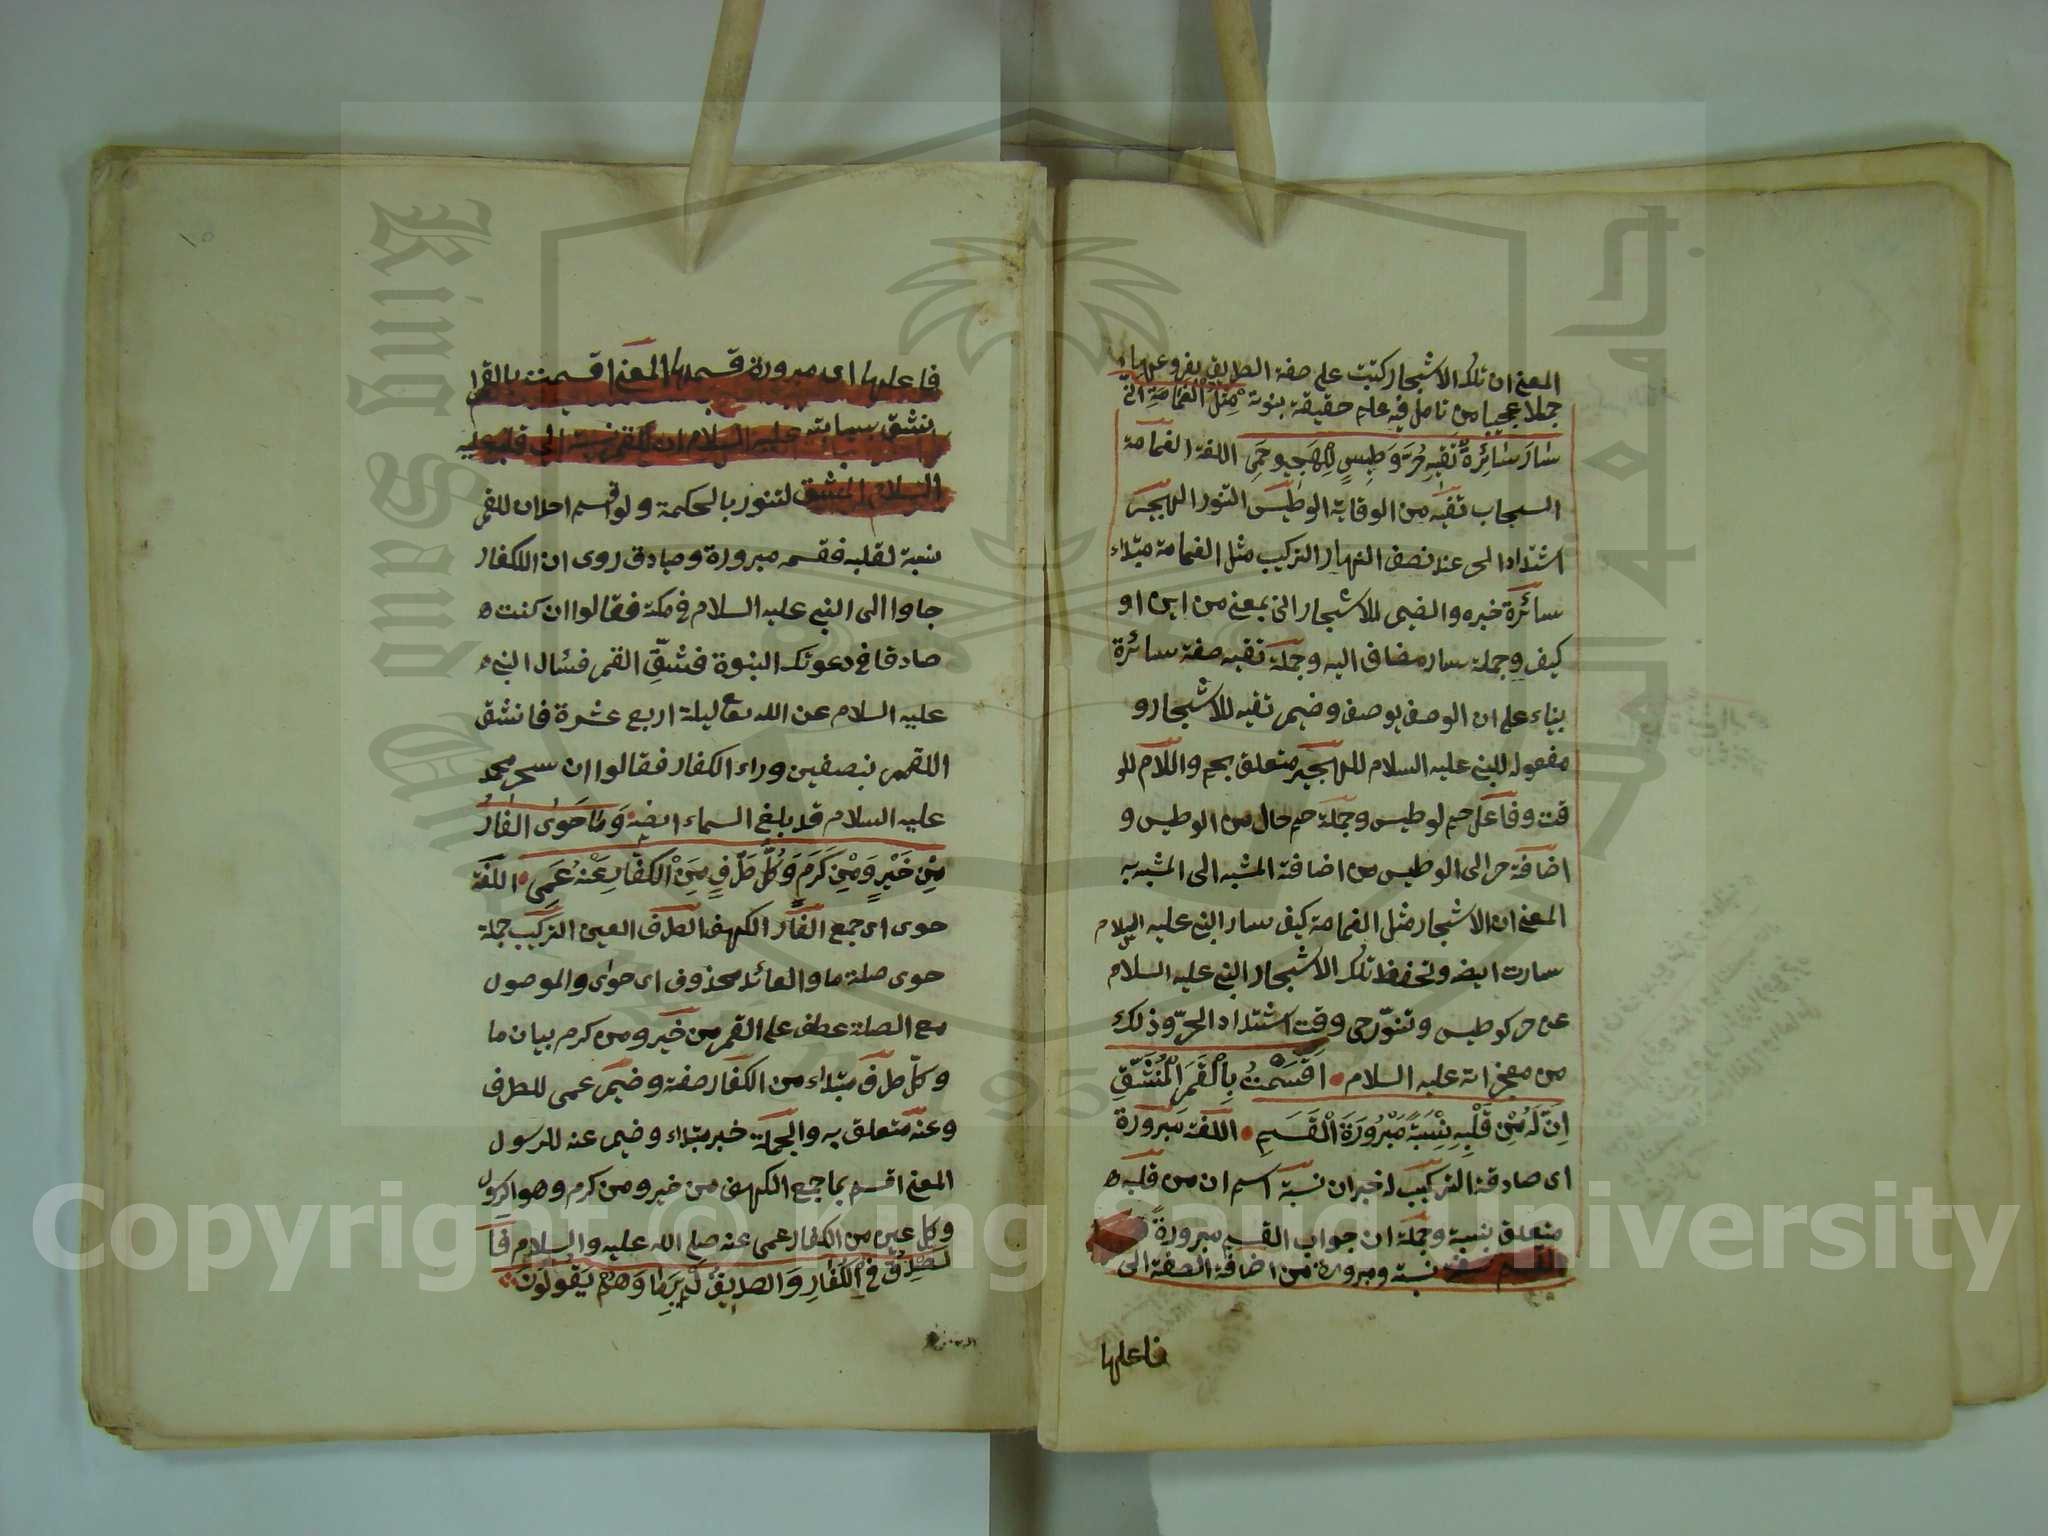 المعنى ان تلك الاشجار كتبت على صفة الطريق بفروعها
جملا عجيبا من تامل فيه علم حقيقة بنوته مِثْلُ الْغَمَامَةِ انّٰى
سَارَ سَائِرَةً تَقِيهِ حَرَّ وَطِيسٍ لِلْهَجِيرِ حَمِى اللغة الغمامة
السحاب تقيه من الوقاية الوطيس التنور الهجير
اشتداد الحر عند نصف النهار التركيب مثل الغمامة مبتداء
سائرة خبره والضمير للاشجار انى بمعنى من اين او
كيف وجملة سار مضاف اليه وجملة تقيه صفة سائرة
بناء على ان الوصف يوصف وضمير تقيه للاشجار و
مفعوله للنبى عليه السلام للهجير متعلق بحم واللام للو
قت وفاعل حم لوطيس وجملة حم حال من الوطيس و
اضافة حر الى الوطيس من اضافة المشبه الى المشبه به
المعنى ان الاشجار مثل الغمامة كيف سار النبى عليه السلام
سارت ايضه وتحفظ تلك الاشجار النبى عليه السلام
عن حر كوطيس وتنور حمى وقت اشتداد الحرّ وذلك
من معجزاته عليه السلام اَقْسَمْتُ بِالْقَمَرِ الْمُنْشَقِّ
اِنَّ لَهُ مِنْ قَلْبِهِ نِسْبَةً مَبْرُورَةَ الْقَسَمِ اللغة مبرورة
اى صادقة التركيب خبر ان نسبة اسم ان من قلبه
متعلق بنسبة وجملة ان جواب القسم مبرورة
القسم صفة نسبة ومبرورة من اضافة الصفة الى
فاعلها
١٥
فاعلها اى مبرورة قسمها المعنى اقسمت بالقمر
نشق بسبابته عليه السلام ان للقمر نسبة الى قلبه عليه
السلام المنشق لتنور بالحكمة ولو اقسم احد ان للقمر
نسبة لقلبه فقسمه مبرورة وصادق روى ان الكفار
جاوا الى النبى عليه السلام فى مكة فقالوا ان كنت
صادقا فى دعوتك النبوة فشقّ القمر فسئال النبى
عليه السلام عن الله تعا ليلة اربع عشرة فانشق
القمر بنصفين وراء الكفار فقالوا ان سحر محمد
عليه السلام قد بلغ السماء ايضه وَمَا حَوٰى الْغَارُ
مِنْ خَيْرٍ وَمِنْ كَرَمٍ وَكُلُّ طَرْفٍ مِنَ الْكُفَّارِ عَنْهُ عَمِى اللغة
حوى اى جمع الغار الكهف الطرف العين التركيب جملة
حوى صلة ما والعائد محذوف اى حواى والموصول
مع الصلة عطف على القمر من خير ومن كرم بيان ما
وكلّ طرف مبتداء من الكفار صفة وضمير عمى للطرف
وعنه متعلق به والجملة خبر مبتداء وضمير عنه للرسول
المعنى اقسم بما جمع الكهف من خير ومن كرم وهو الرسول
وكل عين من الكفار عمى عنه صلى الله عليه والسلام فَا
لصِّدْقُ فِى الْغَارِ وَالصِّدِّيقُ لَمْ يَرِمَا وَهُمْ يَقُولُونَ
Copyright © King Saud University
King Saud University
جامعة الملك سعود
1957